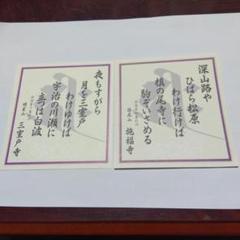 深山路や
ひばら松原
わけ行けば
槙の尾寺に
駒ぞいさめる
施福寺
夜もすがら
月を三室戸
わけゆけば
宇治の川瀬に
立つは白波
三室戸寺